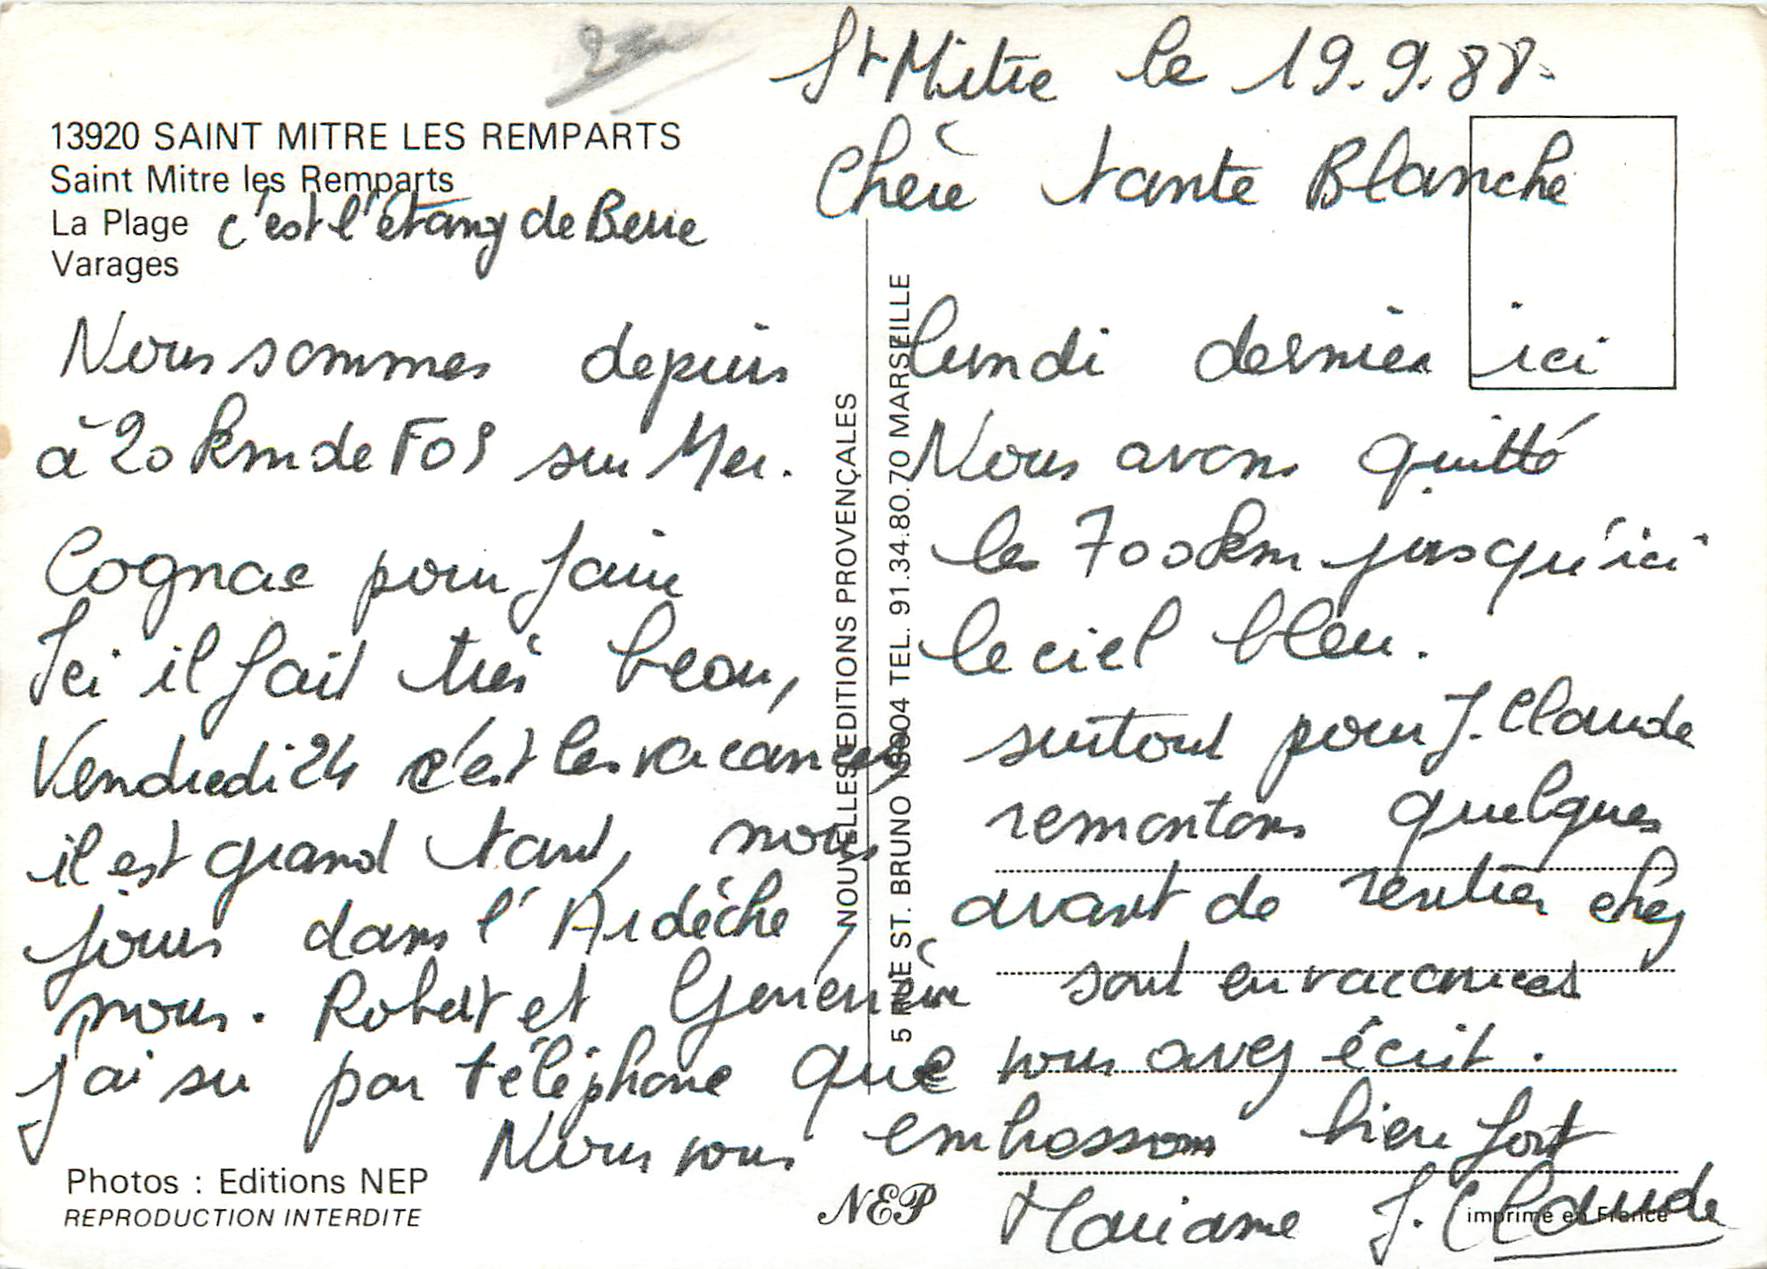 St Mitre le 19.9.88.
13920 SAINT MITRE LES REMPARTS
Saint Mitre les Remparts
La Plage c'est l'étang de Berre
Varages
Chère tante Blanche
Nous sommes depuis lundi dernier ici
à 20 km de FOS sur Mer. Nous avons quitté
Cognac pour faire les 700 km jusqu'ici
Ici il fait très beau, le ciel bleu.
Vendredi 24 c'est les vacances surtout pour J. Claude
il est grand tant, nous remontons quelques
jours dans l'Ardèche, avant de rentrer chez
nous. Robert et Geneviève sont en vaccances
j'ai su par téléphone que vous avez écrit.
Nous vous embrassons bien fort
Mariane J. Claude
NOUVELLES EDITIONS PROVENÇALES
5 RUE ST. BRUNO 13004 TEL. 91.34.80.70 MARSEILLE
Photos : Editions NEP
REPRODUCTION INTERDITE
NEP
imprimé en France